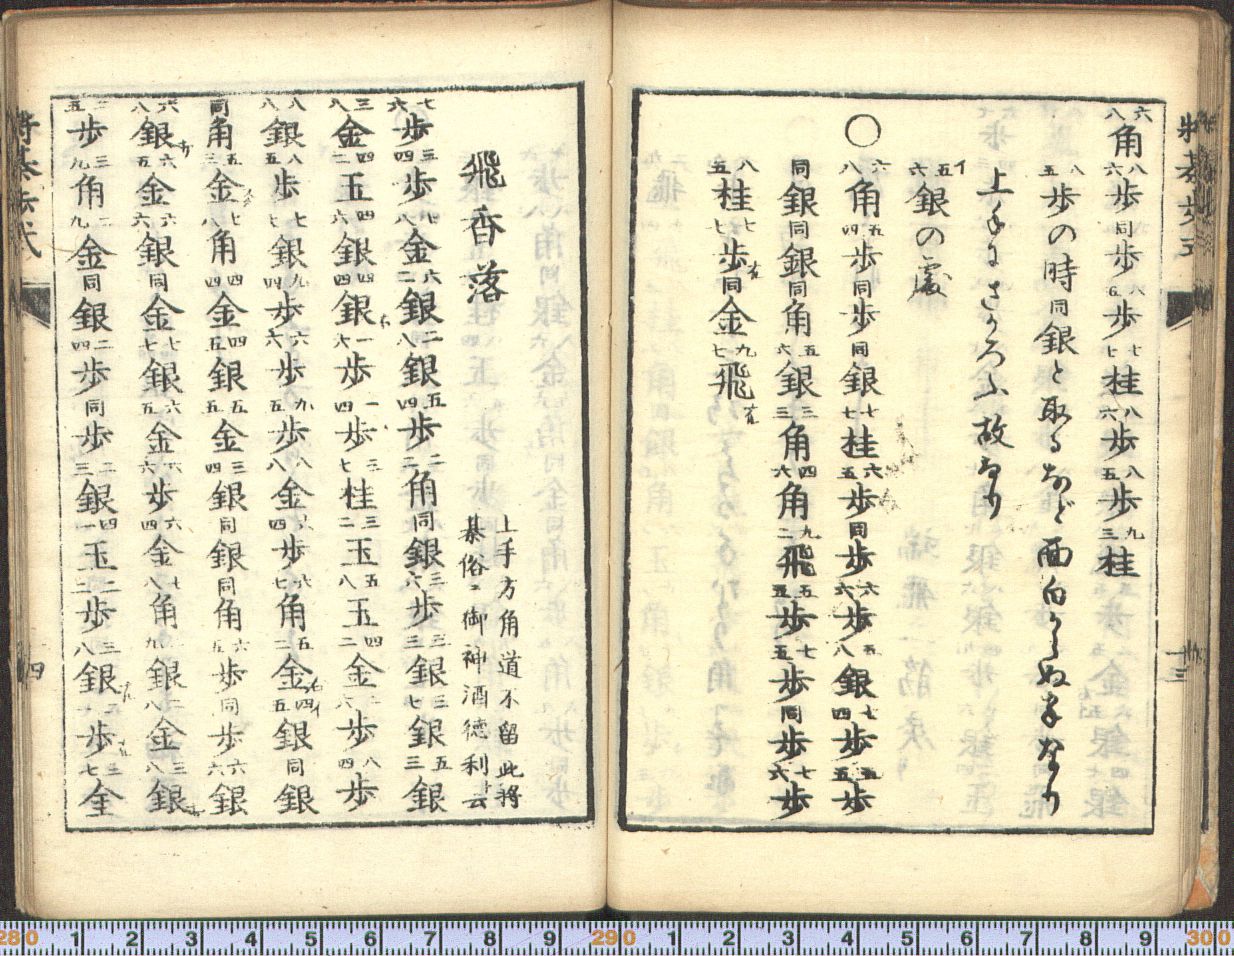 六八角 八六歩 同歩 六八歩 七七桂 八六歩 八五歩 九三桂
八五歩の時同銀と取るなど面白からぬ手なり
上手にさからふ故なり
五六銀の處
〇 六八角 五四歩 同歩 同銀 七七桂 六五歩 同歩 六六歩 五八銀 七四歩 五五歩
同銀 同銀 同角 五六銀 三三角 四六角 九二飛 五五歩 七五歩 同歩 七六歩
八五桂 七七歩 同金 九七飛
飛香落
上手方角道不留此将
棊俗ニ御神酒徳利ト云
七六歩 三四歩 七八金 六二銀 二八銀 五四歩 二二角 同銀 三六歩 三三銀 三七銀 五三銀
三八金 四二玉 四六銀 四四銀 一六歩 一四歩 三七桂 三二玉 五八玉 四二金 二六歩 八四歩
八八銀 八五歩 七七銀 九四歩 六六歩 九五歩 八八金 六四歩 六七角 五二金 四五銀 同銀
同角 五三金 七八角 四四金 四五銀 五五金 三四銀 同銀 同角 六五歩 同歩 六六銀
六八銀 六五金 六六銀 同金 七七銀 六五金 六六歩 六四金 七八角 九二銀 二八金 三八銀
三五歩 三九角 二九金 同銀 二四歩 同歩 二三銀 四一玉 二二歩 三八銀 歩 三七全
将棊
廿三
四